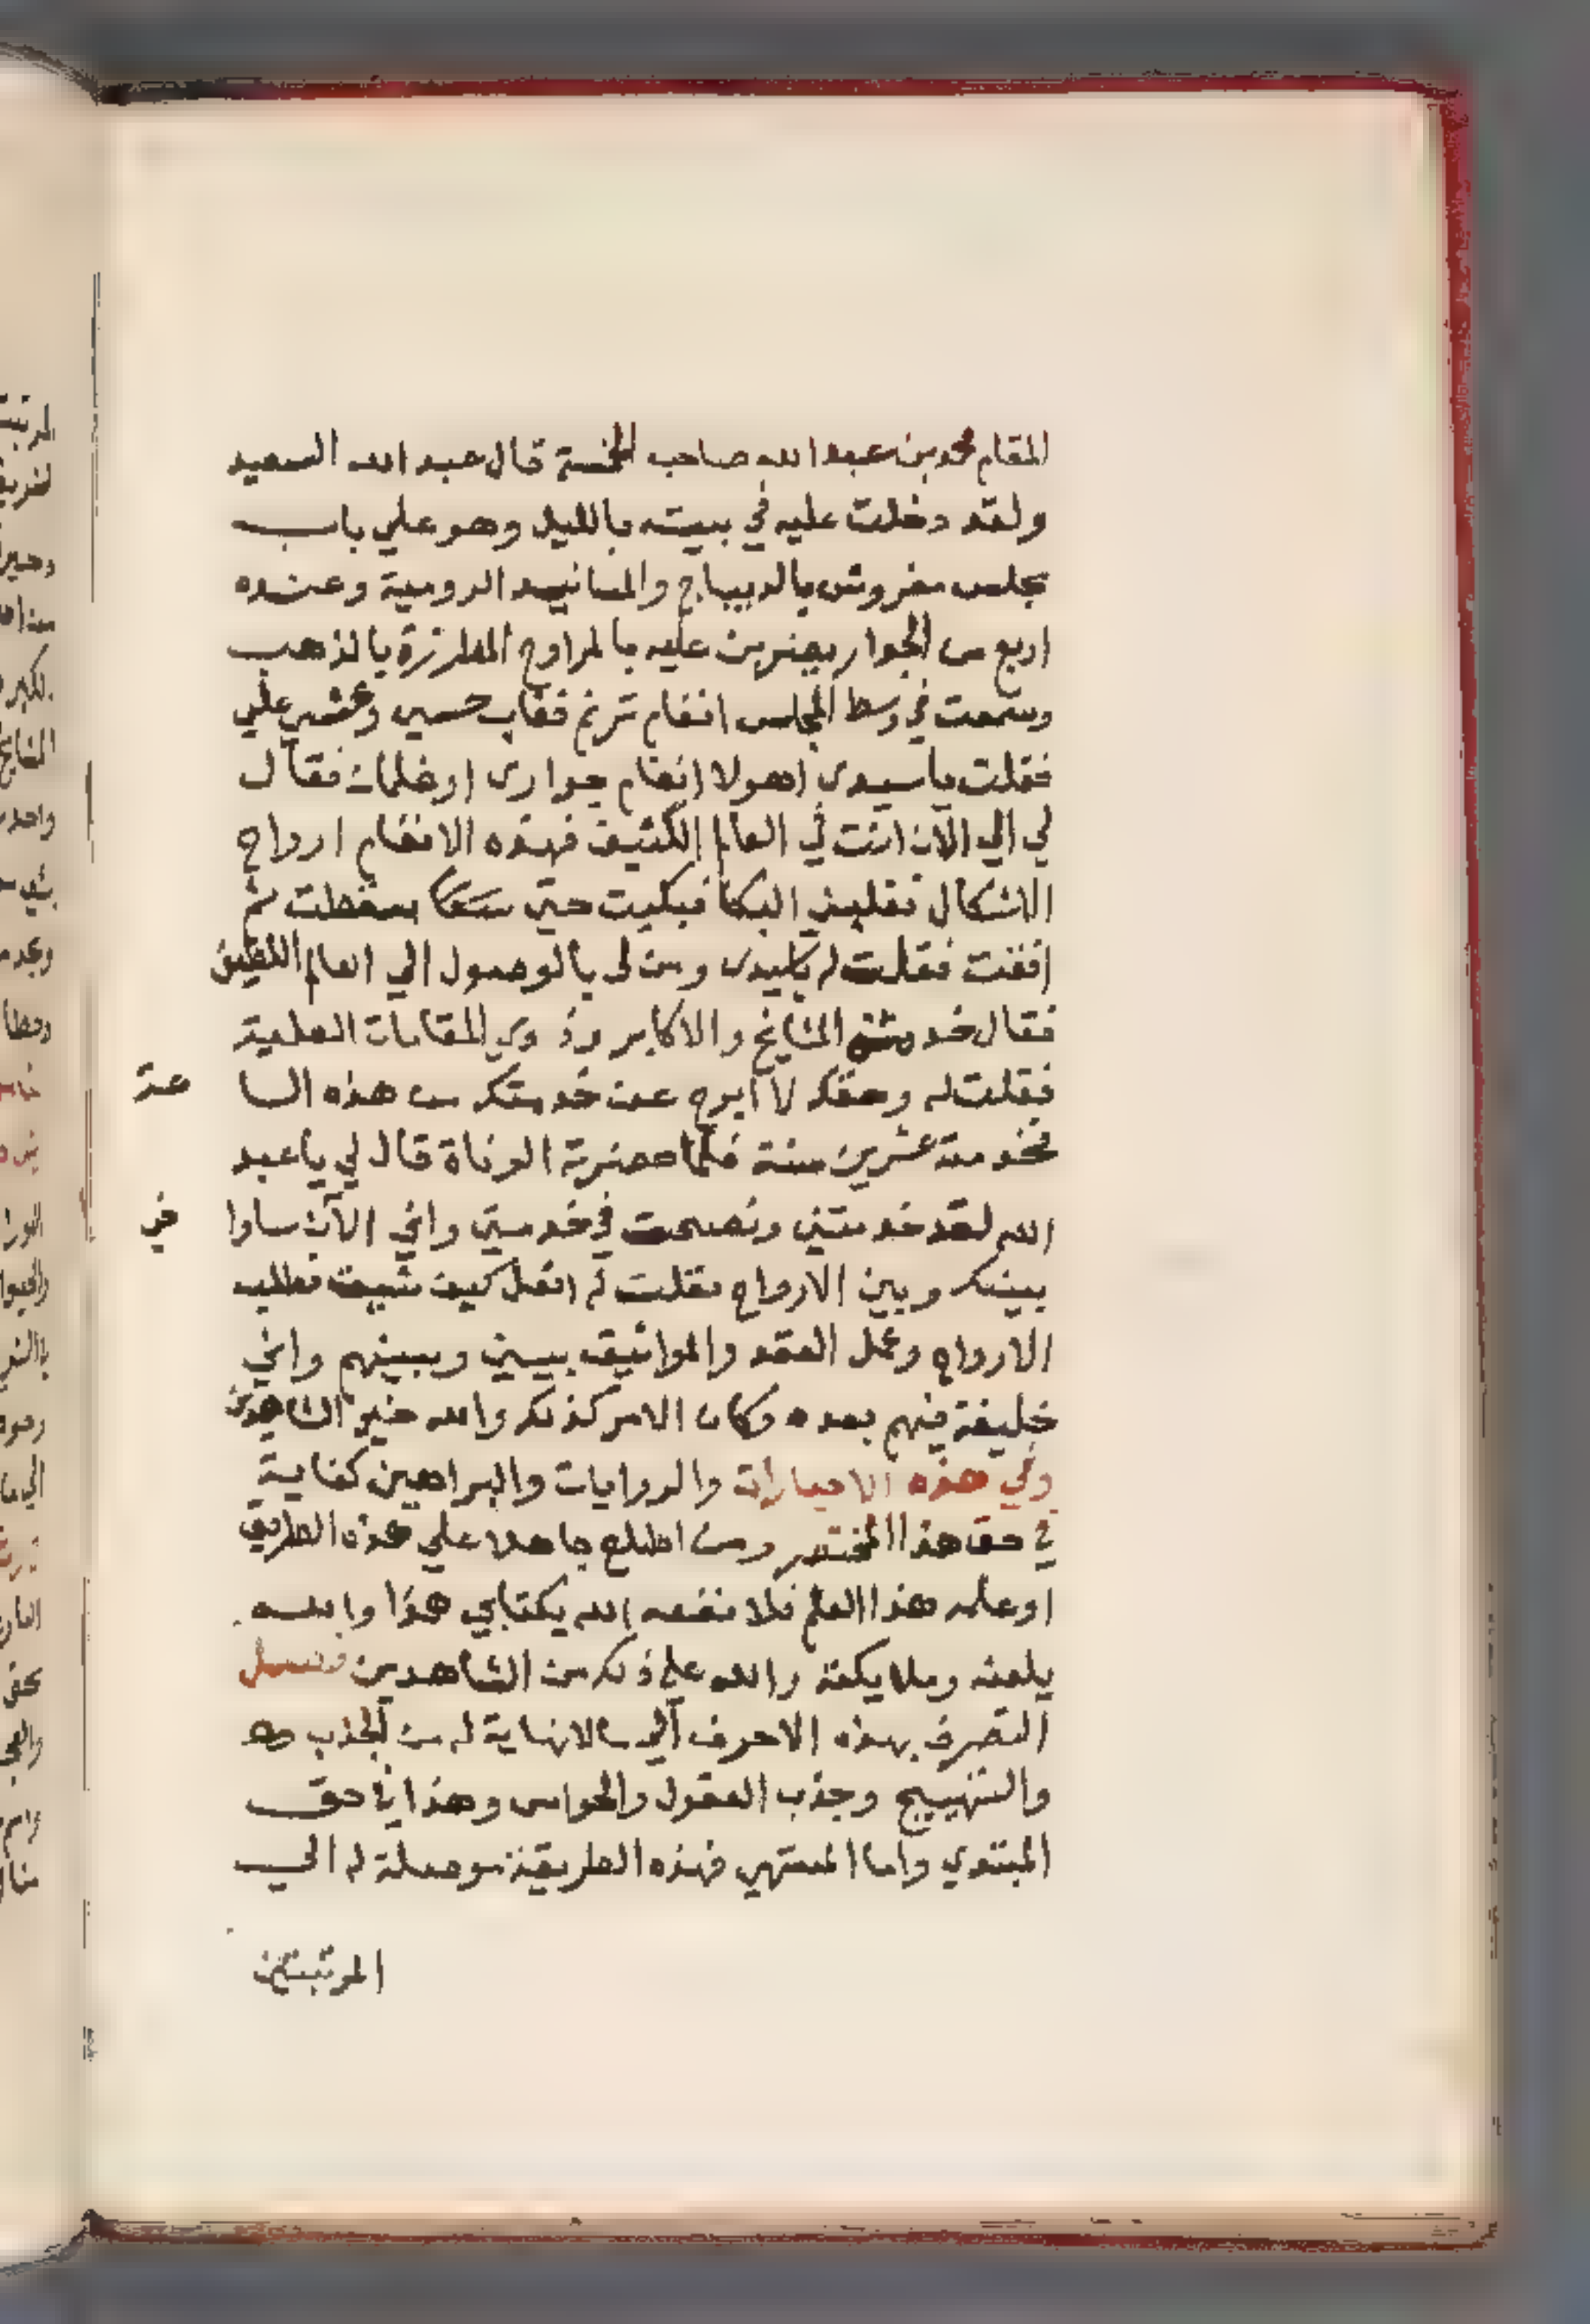 المقام محمد بن عبد الله صاحب الخمسة قال عبد الله السعيد
ولقد دخلت عليه في بيته بالليل وهو علي باب
مجلس مفروش بالديباج والمسانيد الرومية وعنده
اربع من الجوار يضربن عليه بالمراوح المطرزة بالذهب
وسمعت في وسط المجلس انغام ترنم فغاب حسي وغشي علي
فقلت يا سيدى اهولا انغام جوارى او غلمان فقال
لي الي الآن انت في العالم الكثيف فهذه الانغام ارواح
الاشكال فغلبني البكا فبكيت حتى سقطت ثم
افقت فقلت له يا سيدى ومن لى بالوصول الي العالم اللطيف
فقال خدمت المشايخ والاكابر وذوى المقامات العلية
فقلت له وحقك لا ابرح عن خدمتك من هذه السا عة
فخدمته عشرين سنة فلما حضرته الوفاة قال لي يا عبد
الله لقد خدمتني ونصحت في خدمتي واني الآن ساوا خي
بينك وبين الارواح فقلت له افعل كيف شيت فطلب
الارواح وعمل العقد والمواثيق بيني وبينهم واني
خليفة فيهم بعده وكان الامر كذلك والله خير الشاهدين
وفي هذه الاعبارات والروايات والبراهين كفاية
في حق هذا المختصر ومن اطلع جاهلا علي هذه الطريق
او علمه هذا العلم فلا نفعه الله بكتابي هذا والله
يلعنه وملايكته والله علي ذلك من الشاهدين فصل
التصرف بهذه الاحرف الي مالانهاية له من الجذب
والتهييج وجذب العقول والحواس وهذا في حق
المبتدي واما المنتهي فهذه الطريقة موصلة له الي
المرتبتين